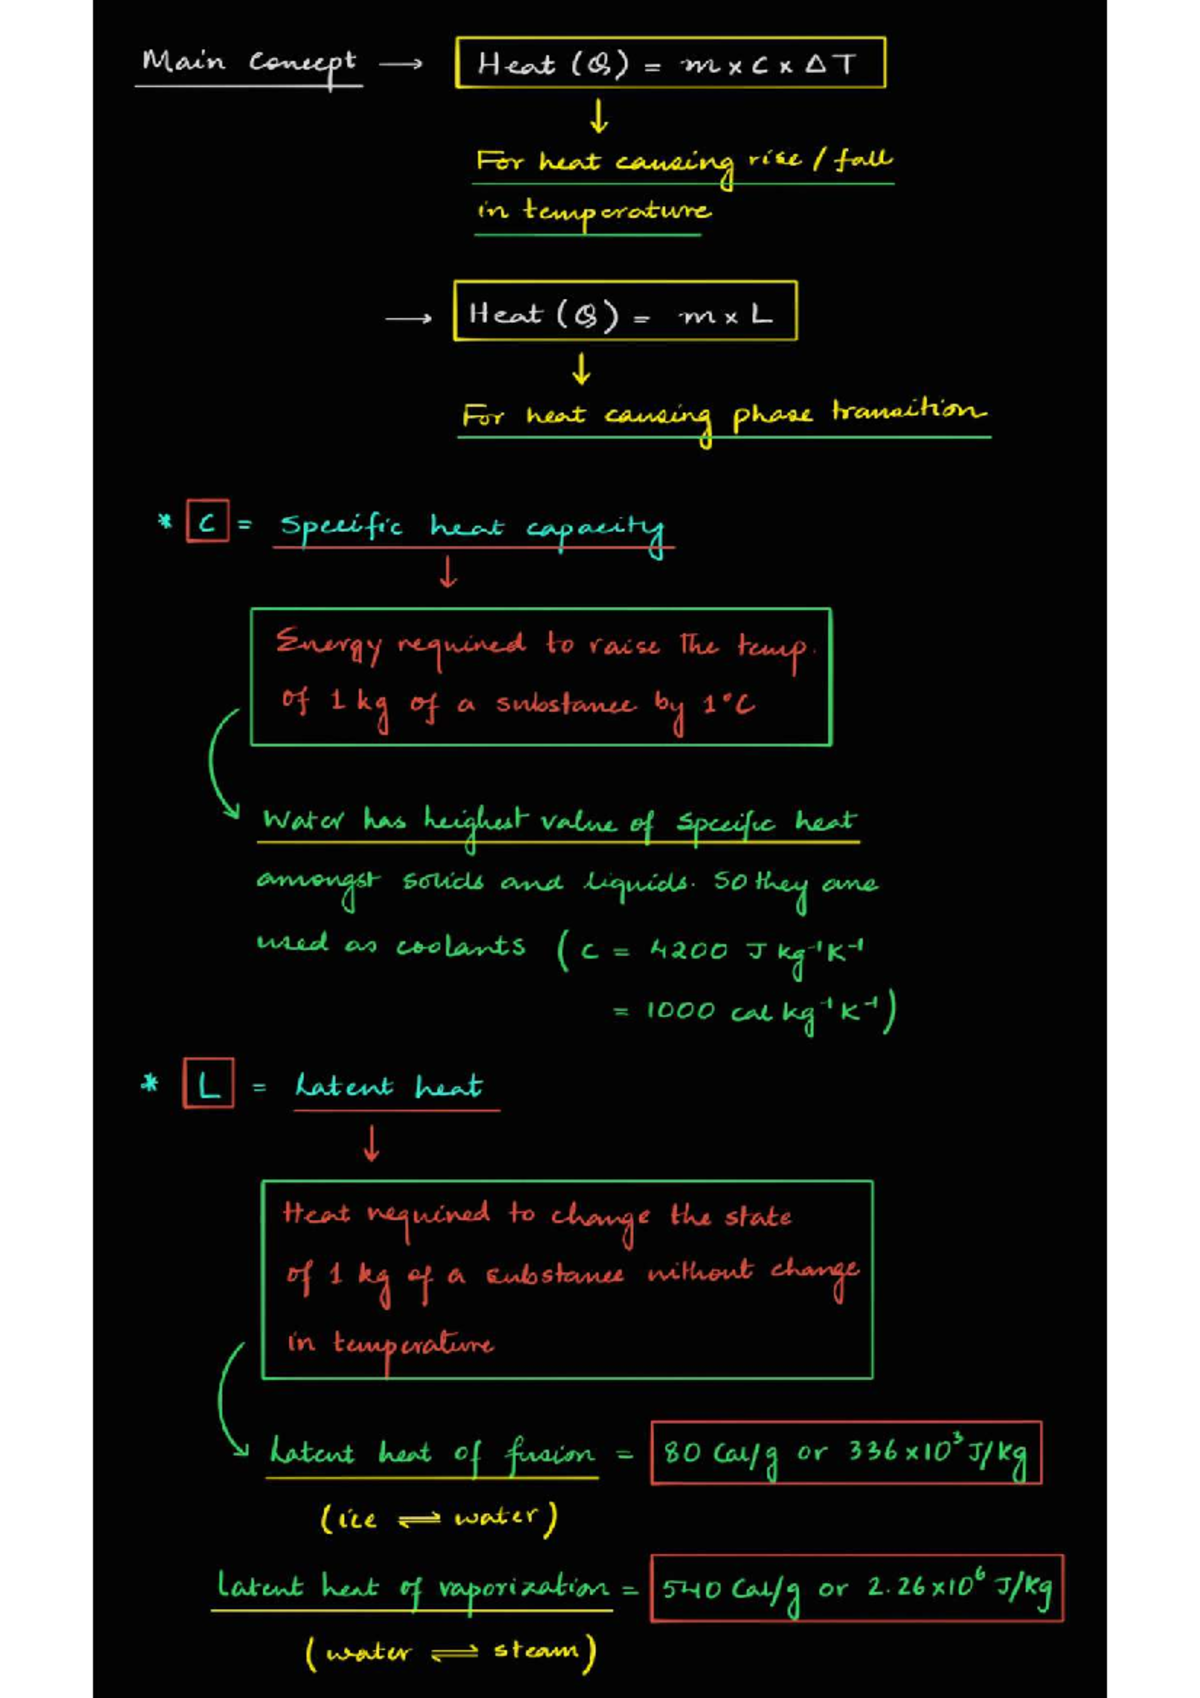 Main Concept → Heat (Q) = m × c × ΔT
↓
For heat causing rise / fall
in temperature
→ Heat (Q) = m × L
↓
For heat causing phase transition
* C = Specific heat capacity
↓
Energy required to raise the temp.
of 1 kg of a substance by 1°C
Water has heighest value of specific heat
amongst solids and liquids. So they are
used as coolants ( C = 4200 J kg⁻¹K⁻¹
= 1000 cal kg⁻¹K⁻¹)
* L = Latent heat
↓
Heat required to change the state
of 1 kg of a substance without change
in temperature
Latent heat of fusion = 80 Cal/g or 336×10³ J/kg
(ice ⇌ water)
Latent heat of vaporization = 540 Cal/g or 2.26×10⁶ J/kg
(water ⇌ steam)